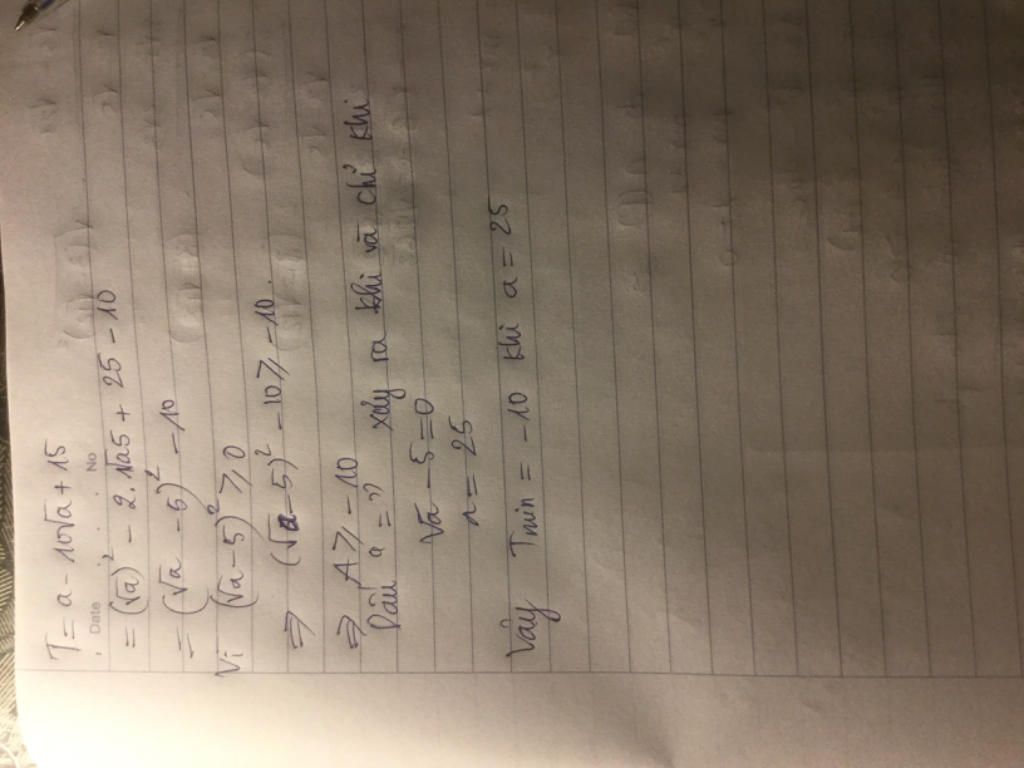 T = a - 10√a + 15
Date . . . No
= (√a)² - 2.√a5 + 25 - 10
= (√a - 5)² - 10
Vì (√a - 5)² ⩾ 0
⇒ (√a - 5)² - 10 ⩾ -10.
⇒ A ⩾ -10
Dấu "=" xảy ra khi và chỉ khi
√a - 5 = 0
a = 25
Vậy Tmin = -10 khi a = 25